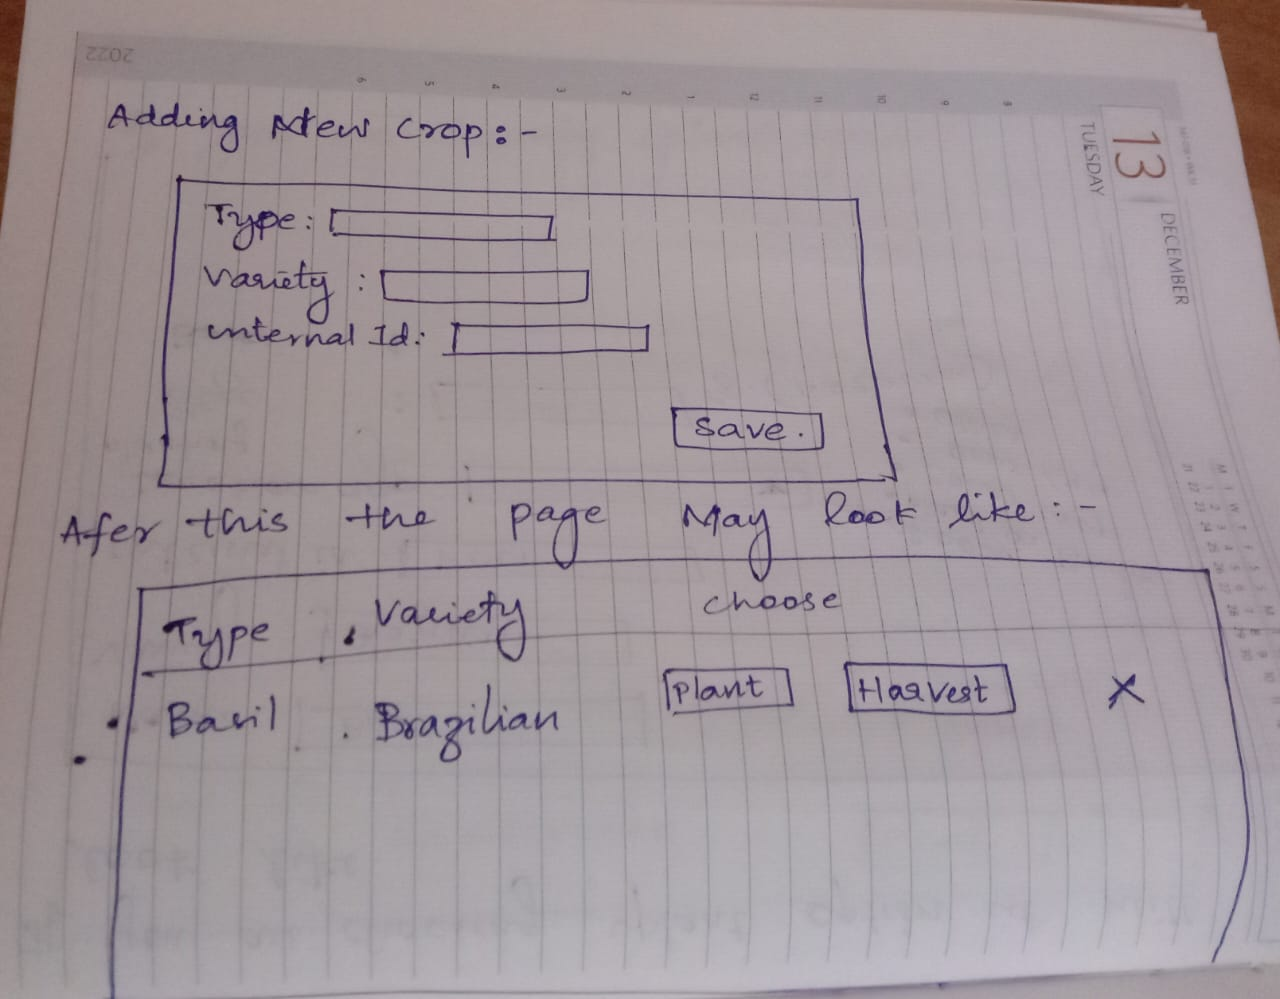 2022
6 5 4 3 2 1 12 11 10 9 8
13
TUESDAY
DECEMBER
Adding New Crop:-
Type:
Variety :
internal Id:
Save.
Afer this the page May look like:-
Type . Variety choose
Basil . Brazilian Plant Harvest X